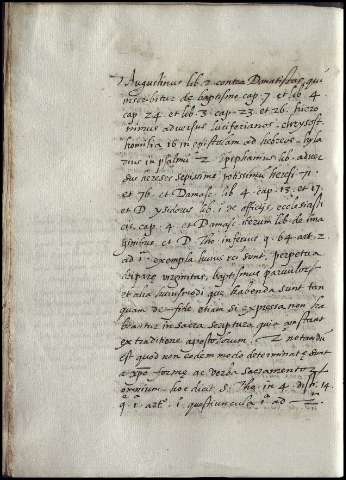 Augustinus lib. 2 contra Donatistas, qui
inscribitur de baptismo cap. 7. et lib. 4.
cap. 24. et lib. 3. cap. 23. et 26. hiero
nimus adversus luciferianos. chrysost.
homilia 16 in epistolam ad hebreos.
tius in psalmū 2. epiphanius lib. adver
sus hereses sepissime heresi 71.
et 76. et Damasc. lib. 4. cap. 13. et 17.
et D. ysidorus lib. 1. de officijs ecclesiasti
cis. cap. 4. et Damasc. iterum lib. de ima
ginibus et D. Tho. inferius q. 64. art. 2.
ad 1. exempla huius rei sunt, perpetua
virginitas, baptismus parvulorū
et alia huiusmodi que habenda sunt tan
quam de fide etiam si expressa non ha
beantur in sacra scriptura, quia constant
ex traditione apostolorum. 2. notandū
est quod non eodem modo determinate sunt
a xpō forme ac verba sacramentorū
omnium. hoc dicit S. Tho. in 4. dist. 14.
q. 1. art. 1. questiuncula 1. ad 2.